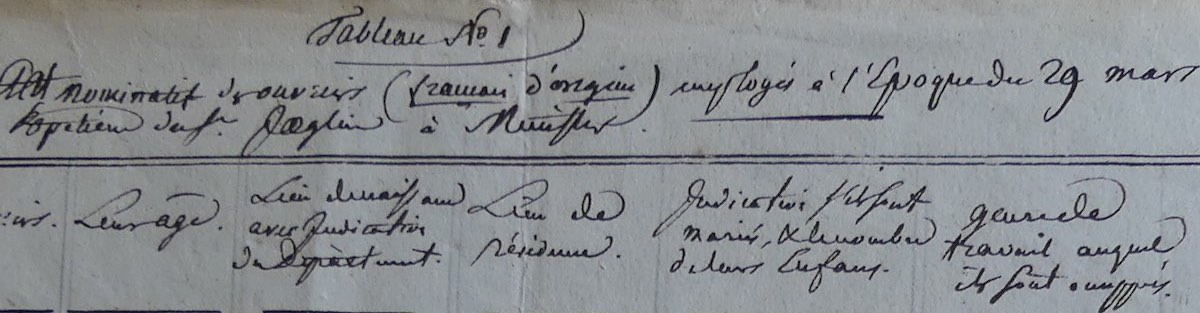 Tableau No. 1
Etat nominatif des ouvriers (français d'origine) employés à l'Epoque du 29 mars
papeterie du Sr. Jæglin à Münster.
Leur âge.
Lieu de naissance
avec Indication
du Département.
Lieu de
résidence.
Indication s'ils sont
mariés, & le nombre
de leurs Enfans.
genre de
travail auquel
ils sont occuppés.